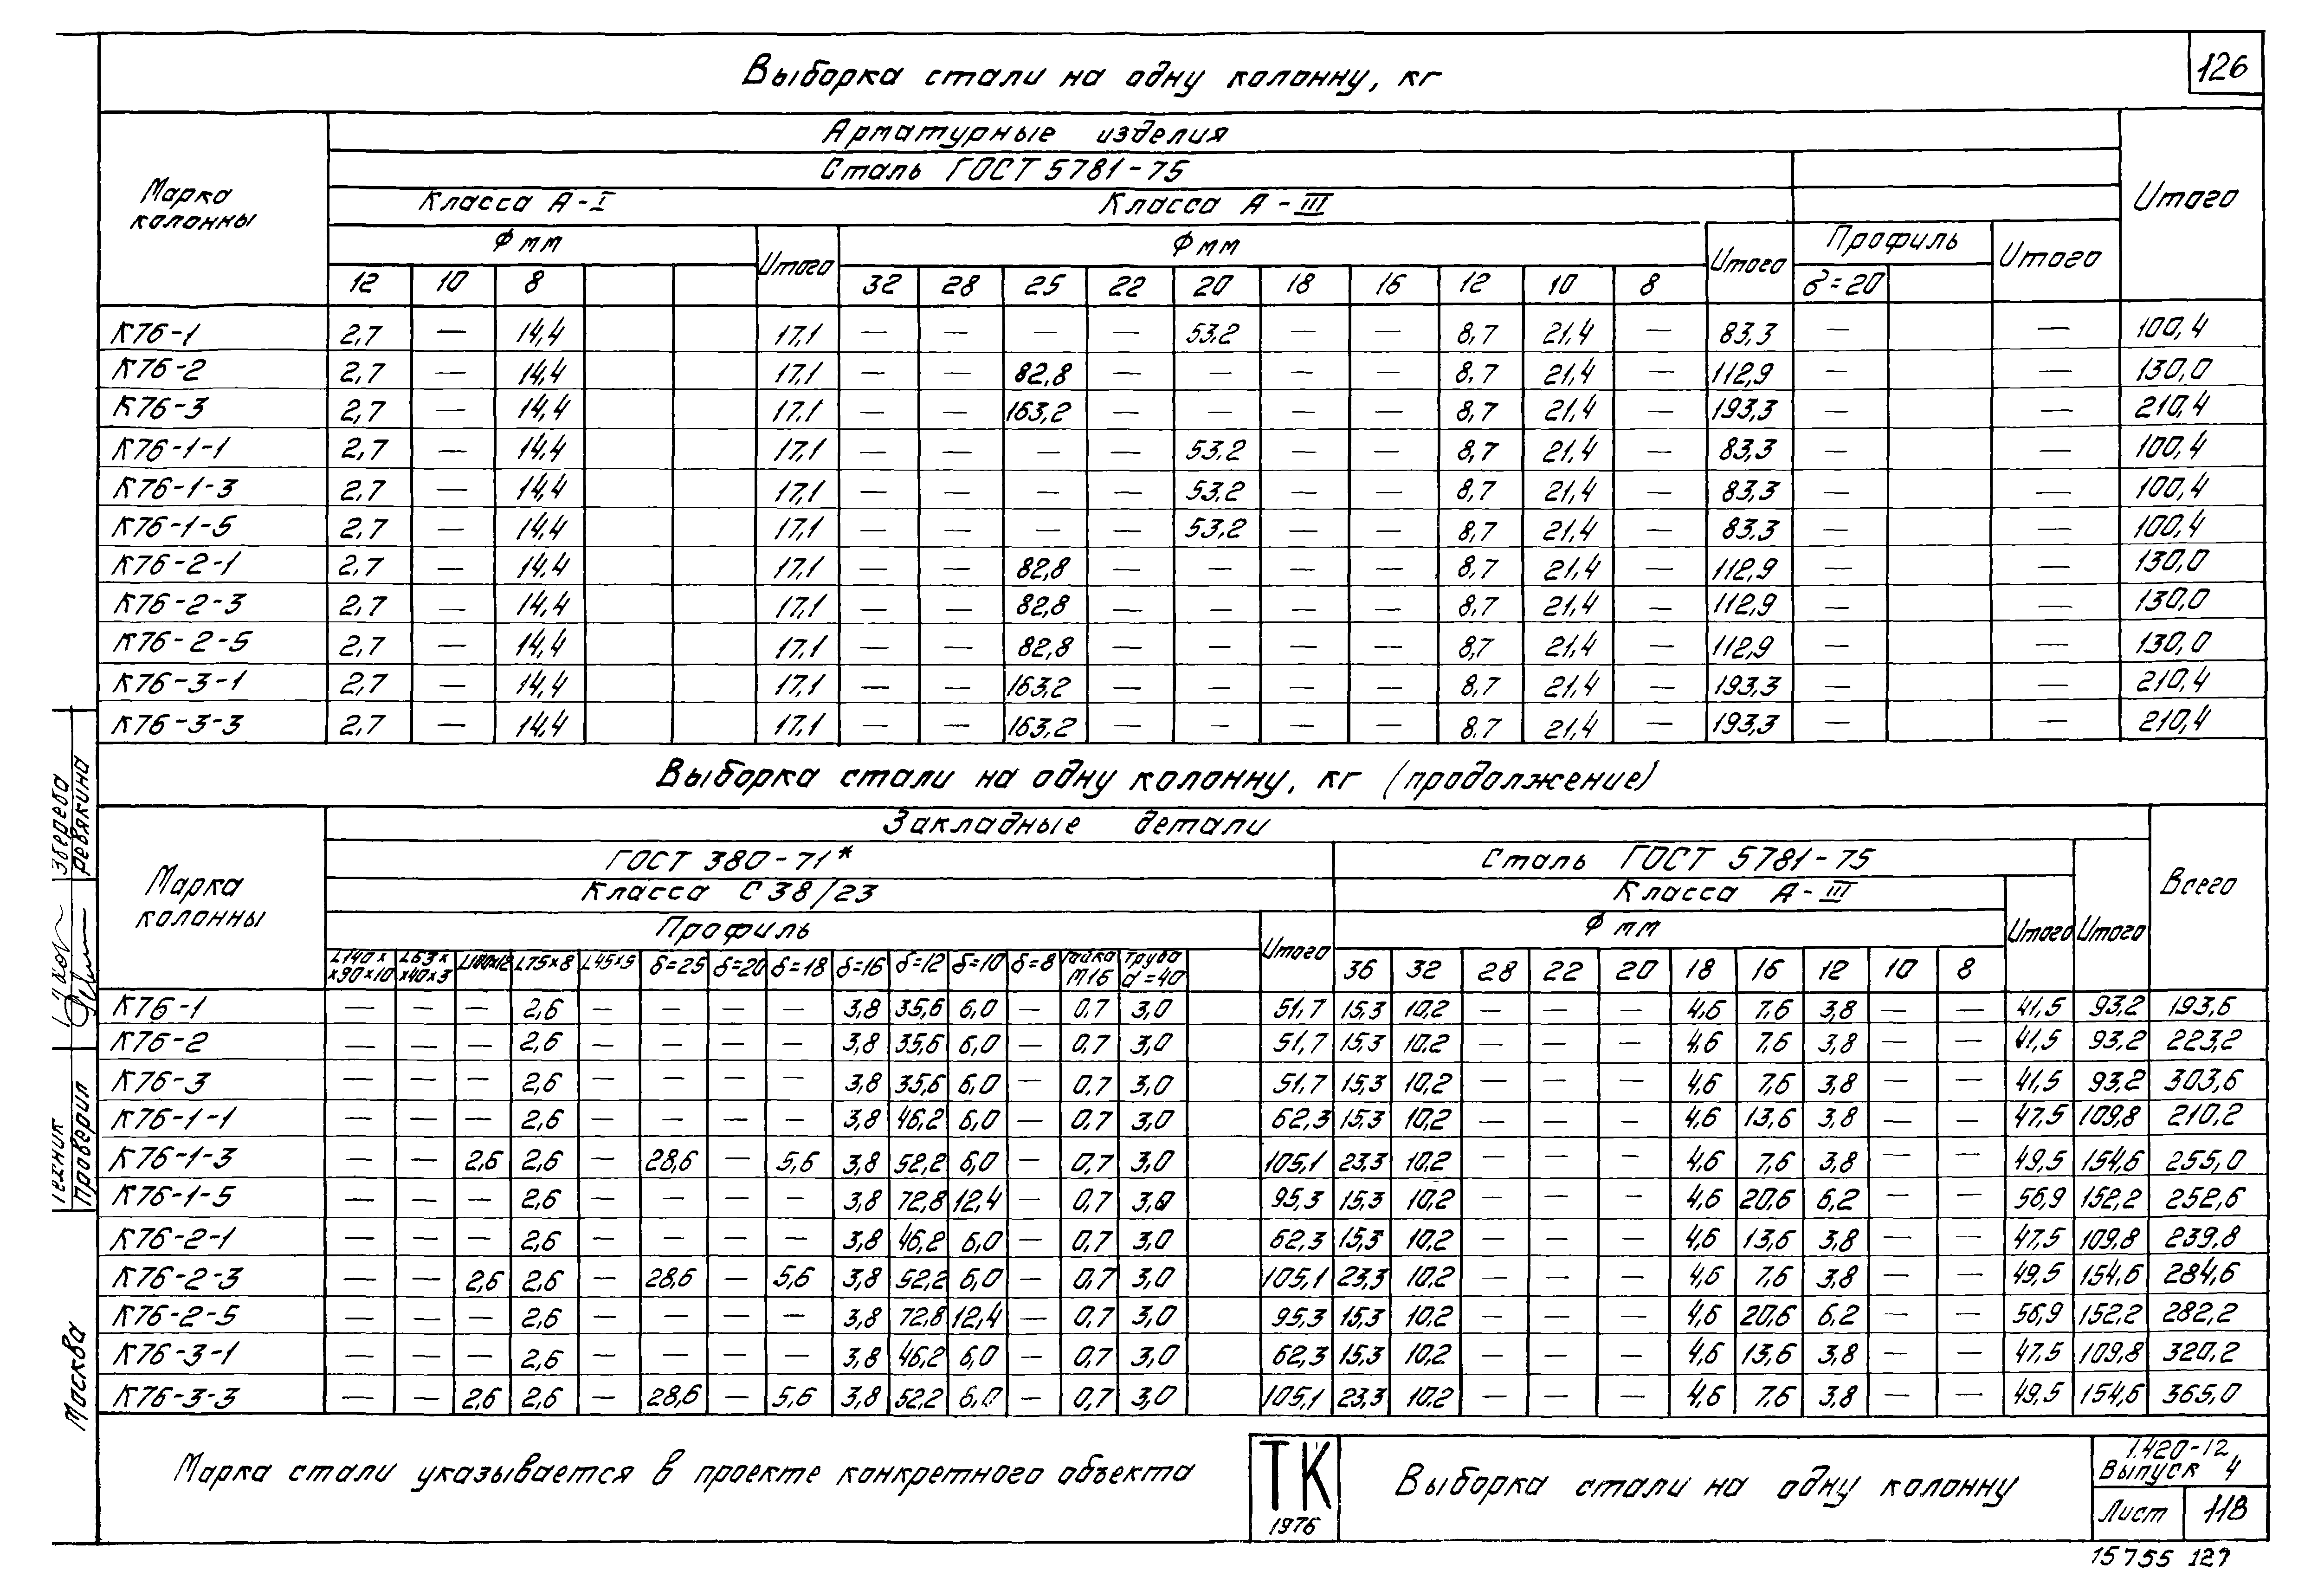 126
Выборка стали на одну колонну, кг
Марка колонны
Арматурные изделия
Итого
Сталь ГОСТ 5781-75
Класса А-I Класса А-III
Ф мм Итого Ф мм Итого Профиль Итого
12 10 8 32 28 25 22 20 18 16 12 10 8 δ=20
К76-1 2,7 — 14,4 17,1 — — — — 53,2 — — 8,7 21,4 — 83,3 — — 100,4
К76-2 2,7 — 14,4 17,1 — — 82,8 — — — — 8,7 21,4 — 112,9 — — 130,0
К76-3 2,7 — 14,4 17,1 — — 163,2 — — — — 8,7 21,4 — 193,3 — — 210,4
К76-1-1 2,7 — 14,4 17,1 — — — — 53,2 — — 8,7 21,4 — 83,3 — — 100,4
К76-1-3 2,7 — 14,4 17,1 — — — — 53,2 — — 8,7 21,4 — 83,3 — — 100,4
К76-1-5 2,7 — 14,4 17,1 — — — — 53,2 — — 8,7 21,4 — 83,3 — — 100,4
К76-2-1 2,7 — 14,4 17,1 — — 82,8 — — — — 8,7 21,4 — 112,9 — — 130,0
К76-2-3 2,7 — 14,4 17,1 — — 82,8 — — — — 8,7 21,4 — 112,9 — — 130,0
К76-2-5 2,7 — 14,4 17,1 — — 82,8 — — — — 8,7 21,4 — 112,9 — — 130,0
К76-3-1 2,7 — 14,4 17,1 — — 163,2 — — — — 8,7 21,4 — 193,3 — — 210,4
К76-3-3 2,7 — 14,4 17,1 — — 163,2 — — — — 8,7 21,4 — 193,3 — — 210,4
Выборка стали на одну колонну, кг (продолжение)
Марка колонны
Закладные детали
Всего
ГОСТ 380-71* Сталь ГОСТ 5781-75 Итого
Класса С38/23 Класса А-III Итого
Профиль Итого Ф мм
L140××90×10 L63××40×5 L180×12 L75×8 L45×5 δ=25 δ=20 δ=18 δ=16 δ=12 δ=10 δ=8 Гайка М16 Труба d=40 36 32 28 22 20 18 16 12 10 8
К76-1 — — — 2,6 — — — — 3,8 35,6 6,0 — 0,7 3,0 51,7 15,3 10,2 — — — 4,6 7,6 3,8 — — 41,5 93,2 193,6
К76-2 — — — 2,6 — — — — 3,8 35,6 6,0 — 0,7 3,0 51,7 15,3 10,2 — — — 4,6 7,6 3,8 — — 41,5 93,2 223,2
К76-3 — — — 2,6 — — — — 3,8 35,6 6,0 — 0,7 3,0 51,7 15,3 10,2 — — — 4,6 7,6 3,8 — — 41,5 93,2 303,6
К76-1-1 — — — 2,6 — — — — 3,8 46,2 6,0 — 0,7 3,0 62,3 15,3 10,2 — — — 4,6 13,6 3,8 — — 47,5 109,8 210,2
К76-1-3 — — 2,6 2,6 — 28,6 — 5,6 3,8 52,2 6,0 — 0,7 3,0 105,1 23,3 10,2 — — — 4,6 7,6 3,8 — — 49,5 154,6 255,0
К76-1-5 — — — 2,6 — — — — 3,8 72,8 12,4 — 0,7 3,0 95,3 15,3 10,2 — — — 4,6 20,6 6,2 — — 56,9 152,2 252,6
К76-2-1 — — — 2,6 — — — — 3,8 46,2 6,0 — 0,7 3,0 62,3 15,3 10,2 — — — 4,6 13,6 3,8 — — 47,5 109,8 239,8
К76-2-3 — — 2,6 2,6 — 28,6 — 5,6 3,8 52,2 6,0 — 0,7 3,0 105,1 23,3 10,2 — — — 4,6 7,6 3,8 — — 49,5 154,6 284,6
К76-2-5 — — — 2,6 — — — — 3,8 72,8 12,4 — 0,7 3,0 95,3 15,3 10,2 — — — 4,6 20,6 6,2 — — 56,9 152,2 282,2
К76-3-1 — — — 2,6 — — — — 3,8 46,2 6,0 — 0,7 3,0 62,3 15,3 10,2 — — — 4,6 13,6 3,8 — — 47,5 109,8 320,2
К76-3-3 — — 2,6 2,6 — 28,6 — 5,6 3,8 52,2 6,0 — 0,7 3,0 105,1 23,3 10,2 — — — 4,6 7,6 3,8 — — 49,5 154,6 365,0
Марка стали указывается в проекте конкретного объекта
ТК
1976
Выборка стали на одну колонну
1.420-12
Выпуск 4
Лист 118
15755 127
Техник Зверева
Проверил Ревякина
Москва